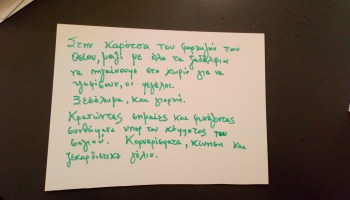 Στην καρότσα του φορτηγού του
Θείου, μαζί με όλα τα ξαδέλφια
να πηγαίνουμε στο χωριό για να
ψηφίσουν, οι μεγάλοι.
Ξεσάλωμα, και γιορτή.
Κρατώντας σημαίες και φωνάζοντας
συνθήματα υπέρ του κόμματος του
σογιού. Κορναρίσματα, κίνηση και
ξεκαρδιστικό γέλιο.